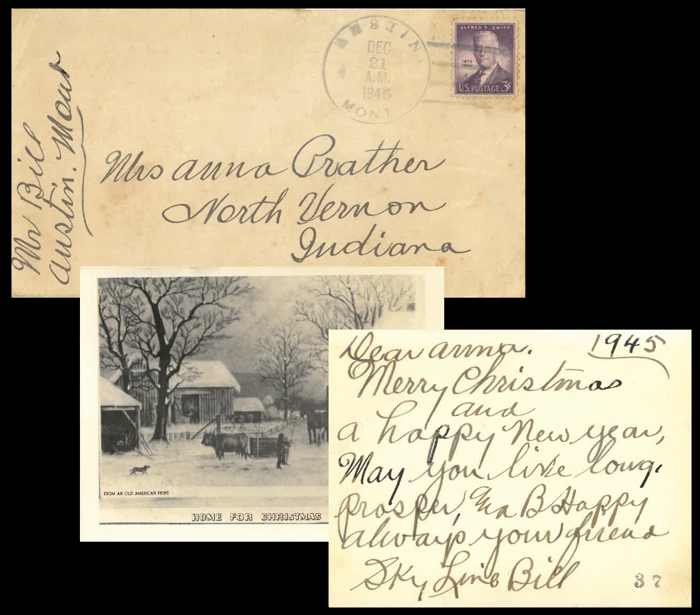 DEC
21
A.M.
1945
MONT
ALFRED E. SMITH
1873
1944
U.S. POSTAGE 3¢
Mr Bill
Austin. Mont
Mrs anna Prather
North Vernon
Indiana
FROM AN OLD AMERICAN PRINT
HOME FOR CHRISTMAS
Dear anna. 1945
Merry Christmas
and
a happy New year,
May you live long.
prosper, En B Happy
always your friend
Sky Line Bill
37